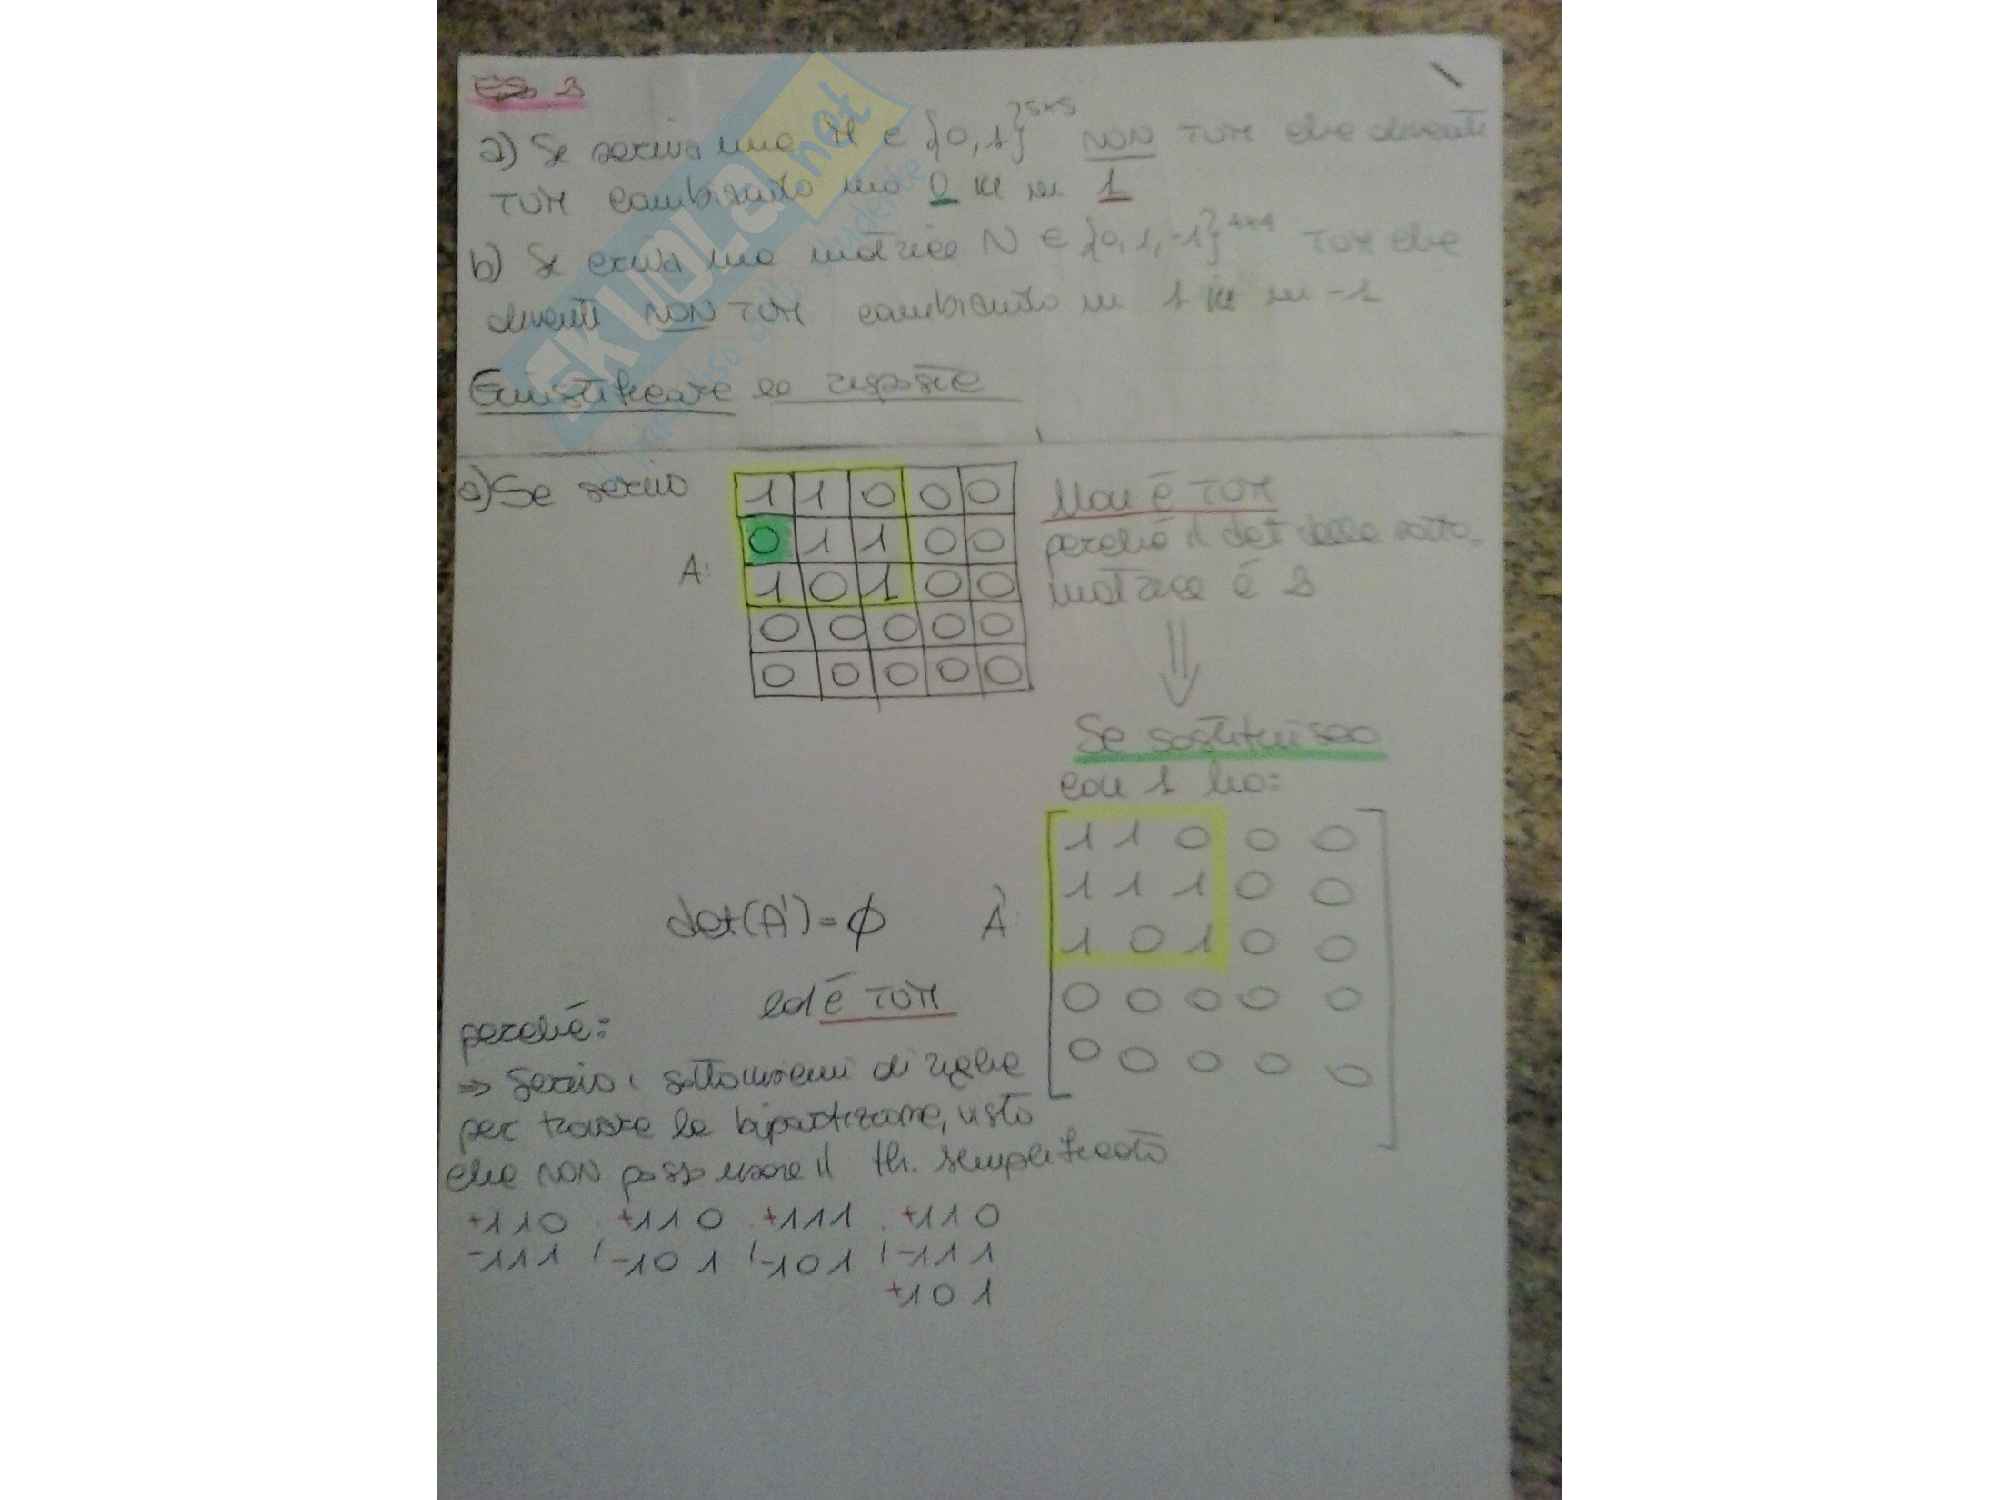 ES 3
a) Si scriva una M ∈ {0,1}^5x5 NON TUM che diventi
TUM cambiando uno 0 in 1
b) Si scriva una matrice N ∈ {0,1,-1}^4x4 TUM che
diventi NON TUM cambiando un 1 in -1
Giustificare le risposte
a) Se scrivo
A:
1 1 0 0 0
0 1 1 0 0
1 0 1 0 0
0 0 0 0 0
0 0 0 0 0
Non è TUM
perché il det della sotto.
matrice è
Se sostituisco
con 1 ho:
A'
1 1 0 0 0
1 1 1 0 0
1 0 1 0 0
0 0 0 0 0
0 0 0 0 0
det(A')=φ
ed è TUM
perché:
⇒ scrivo i sottoinsiemi di righe
per trovare la bipartizione, visto
che NON posso usare il th. semplificato
+110 , +110 , +111 , +110
-111 , -101 , -101 , -111
+101
SKUOLA.net